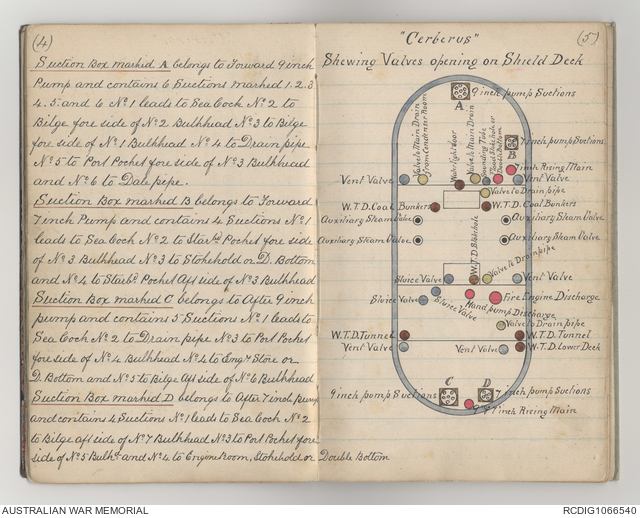 (4)
Suction Box marked A belongs to Forward 9 inch
Pump and contains 6 Suctions marked 1. 2. 3
4. 5. and 6 No 1 leads to Sea Cock No 2 to
Bilge fore side of No 2 Bulkhead No 3 to Bilge
fore side of No 1 Bulkhead No 4 to Drain pipe
No 5 to Port Pocket fore side of No 3 Bulkhead
and No 6 to Dale pipe.
Suction Box marked B belongs to Forward
7 inch Pump and contains 4 Suctions No 1
leads to Sea Cock No 2 to Starbd Pocket fore side
of No 3 Bulkhead No 3 to Stokehold or D. Bottom
and No 4 to Starbd Pocket Aft side of No 3 Bulkhead
Suction Box marked C belongs to After 9 inch
pump and contains 5 Suctions No 1 leads to
Sea Cock No 2 to Drain pipe No 3 to Port Pocket
fore side of No 4 Bulkhead No 4 to Engr Store or
D. Bottom and No 5 to Bilge Aft side of No 6 Bulkhead
Suction Box marked D belongs to After 7 inch pump
and contains 4 Suctions No 1 leads to Sea Cock No 2
to Bilge aft side of No 7 Bulkhead No 3 to Port Pocket fore
side of No 5 Bulkd and No 4 to Engine Room, Stokehold or Double Bottom
(5)
"Cerberus"
Shewing Valves opening on Shield Deck
9 inch pump Suctions
A
Valve to Main Drain
from Condenser Room
Watertight door
Valve to Main Drain
Sounding Tube
Double Bottom
7 inch pump Suctions
B
7 inch Rising Main
Vent Valve
Vent Valve
Valve to Drain pipe
W.T.D. Coal Bunkers
W.T.D. Coal Bunkers
Auxiliary Steam Valve
Auxiliary Steam Valve
Auxiliary Steam Valve
Auxiliary Steam Valve
W.T.D. Stokehole
Valve to Drain pipe
Sluice Valve
Vent Valve
Sluice Valve
Sluice Valve
Hand pump Discharge
Fire Engine Discharge
Valve to Drain pipe
W.T.D. Tunnel
W.T.D. Tunnel
Vent Valve
Vent Valve
W.T.D. Lower Deck
C
D
9 inch pump Suctions
7 inch pump Suctions
7 inch Rising Main
AUSTRALIAN WAR MEMORIAL
RCDIG1066540